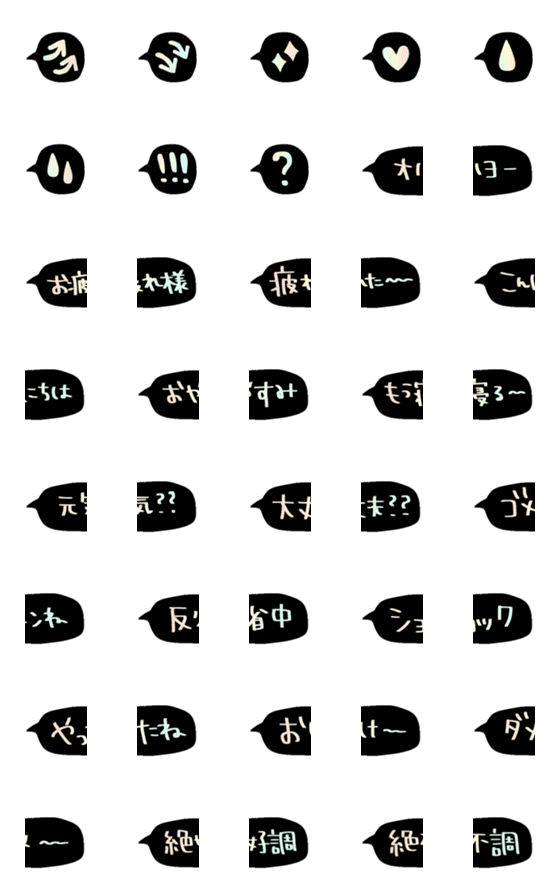 !!! ? オハヨー
お疲れ様 疲れた〜〜 こん
にちは おやすみ もう寝る〜
元気?? 大丈夫?? ゴメ
ンね 反省中 ショック
やったね おけ〜 ダメ
〜 絶好調 絶不調